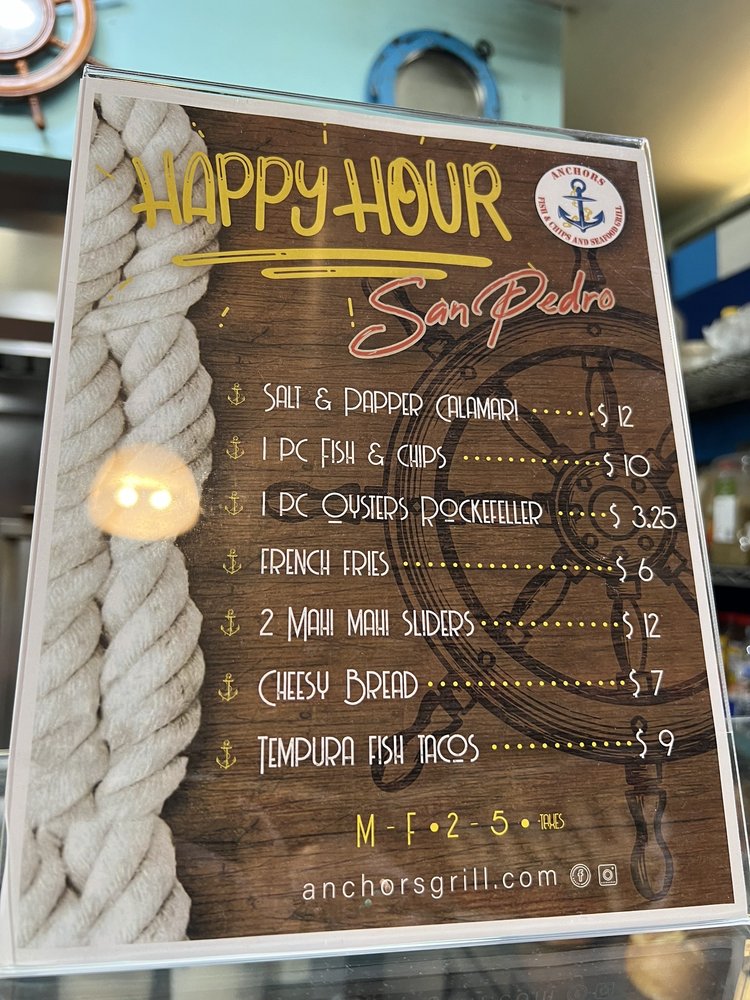 HAPPY HOUR
ANCHORS
FISH & CHIPS AND SEAFOOD GRILL
San Pedro
SALT & PAPPER CALAMARI ....... $ 12
1 PC FISH & CHIPS .............. $ 10
1 PC OYSTERS ROCKEFELLER ..... $ 3.25
FRENCH FRIES ..................... $ 6
2 MAHI MAHI SLIDERS .............. $ 12
CHEESY BREAD .................... $ 7
TEMPURA FISH TACOS .............. $ 9
M - F • 2 - 5 •
anchorsgrill.com